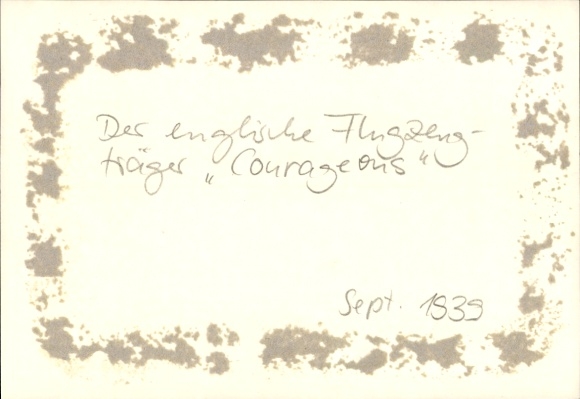 Der englische Flugzeug-
träger „Courageous"
Sept. 1939